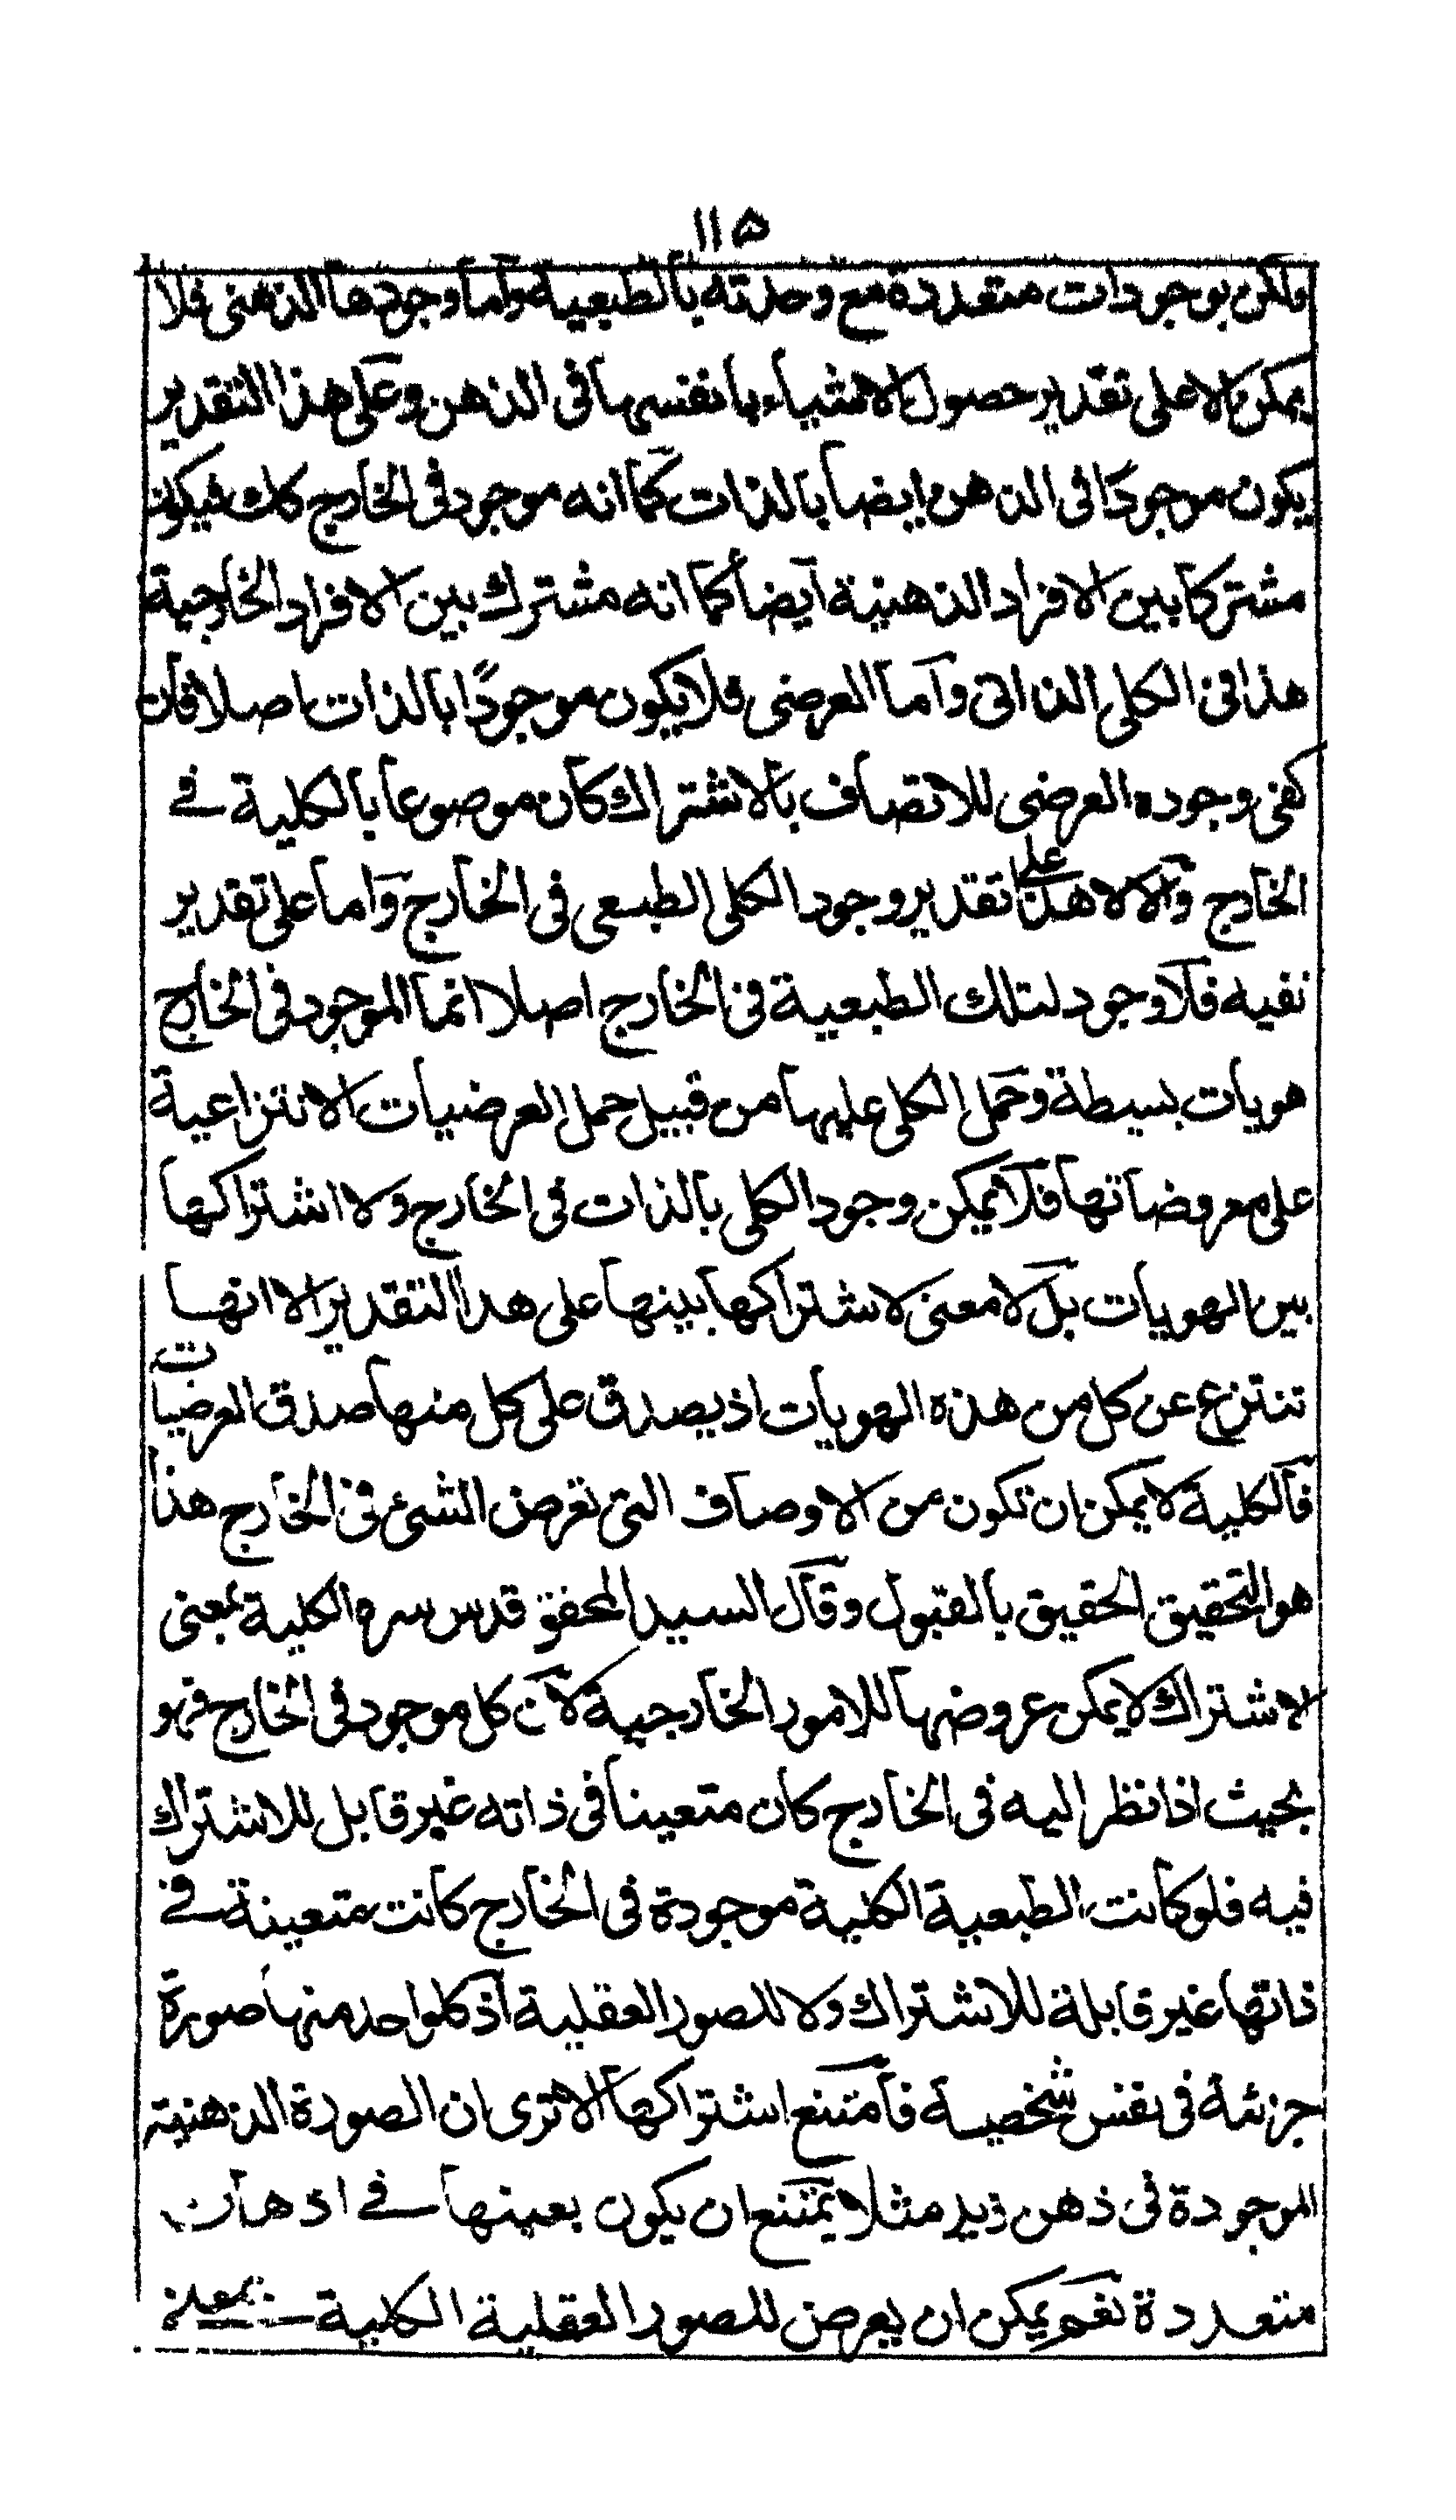 ١١۵
ولكن بوجودات متعددة مع وحدته بالطبعية واما وجودها الذهنى فلا
يمكن الا على تقدير حصول الاشياء بانفسها فى الذهن وعلى هذا التقدير
يكون موجودًا فى الذهن ايضا بالذات كما انه موجود فى الخارج كك فيكون
مشتركا بين الافراد الذهنية ايضا كما انه مشترك بين الافراد الخارجية
هذا فى الكلى الذاتى واما العرضى فلا يكون موجودًا بالذات اصلا فان
كفى وجوده العرضى للاتصاف بالاشتراك كان موصوعا بالكلية فے
الخارج والا لا هذا على تقدير وجود الكلى الطبعى فى الخارج واما على تقدير
نفيه فلا وجود لتلك الطبعية فى الخارج اصلا انما الموجود فى الخارج
هويات بسيطة وحمل الكلى عليها من قبيل حمل العرضيات الانتزاعية
على معروضاتها فلا يمكن وجود الكلى بالذات فى الخارج ولا اشتراكها
بين الهويات بل لا معنى لاشتراكها بينها على هذا التقدير الا انها
تنتزع عن كل من هذه الهويات اذ يصدق على كل منها صدق العرضيات
فالكلية لا يمكن ان تكون من الاوصاف التى تعرض الشىء فى الخارج هذا
هو التحقيق الحقيق بالقبول وقال السيد المحقق قدس سره الكلية بمعنى
الاشتراك لا يمكن عروضها للامور الخارجية لان كل موجود فى الخارج فهو
بحيث اذا نظر اليه فى الخارج كان متعينا فى ذاته غير قابل للاشتراك
فيه فلو كانت الطبعية الكلية موجودة فى الخارج كانت متعينة فے
ذاتها غير قابلة للاشتراك ولا للصور العقلية اذ كلواحد منها صورة
جزئة فى نفس شخصية فامتنع اشتراكها الا ترى ان الصورة الذهنية
الموجودة فى ذهن زيد مثلا يمتنع ان يكون بعينها فے اذهان
متعددة نعم يمكن ان يعرض للصور العقلية الكلية بمعنے